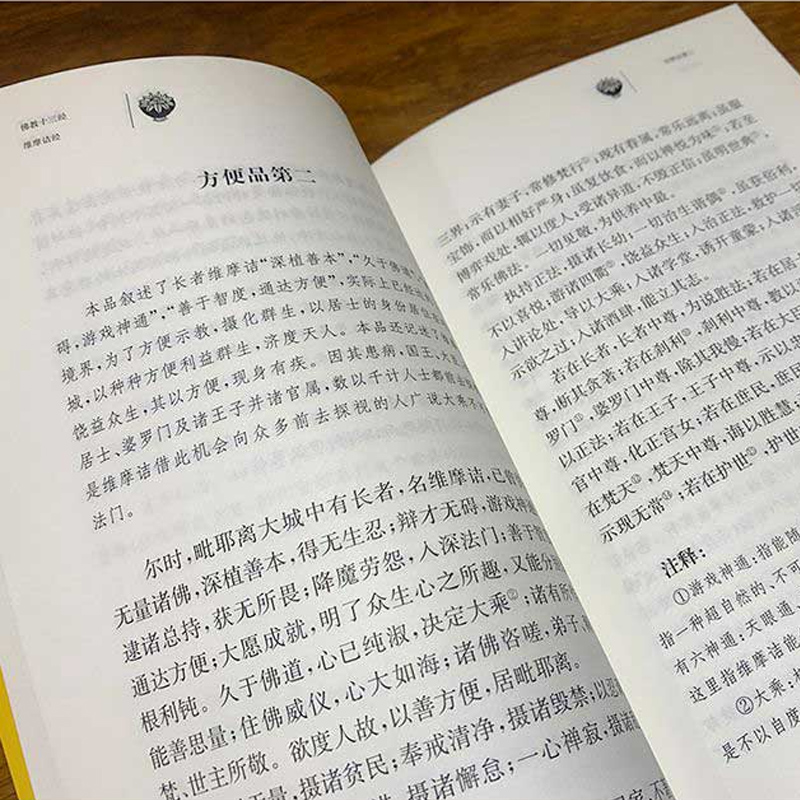 佛教十三经
维摩诘经
方便品第二
本品叙述了长者维摩诘“深植善本”，“久于佛道
碍，游戏神通”，“善于智度，通达方便”，实际上已
境界，为了方便示教，摄化群生，以居士的身份居住
城，以种种方便利益群生，济度天人。本品还记述了
饶益众生，其以方便，现身有疾。因其患病，国王、大臣
居士、婆罗门及诸王子并诸官属，数以千计人士都前去
是维摩诘借此机会向众多前去探视的人广说大乘不
法门。
尔时，毗耶离大城中有长者，名维摩诘，已曾
无量诸佛，深植善本，得无生忍；辩才无碍，游戏神通
逮诸总持，获无所畏；降魔劳怨，入深法门；善于智
通达方便；大愿成就，明了众生心之所趣，又能分别
根利钝。久于佛道，心已纯淑，决定大乘②；诸有所
能善思量；住佛威仪，心大如海；诸佛咨嗟，弟子、
梵、世主所敬。欲度人故，以善方便，居毗耶离。
无量，摄诸贫民；奉戒清净，摄诸毁禁；以忍
摄诸懈怠；一心禅寂，摄诸
三界；示有妻子，常修梵行；现有眷属，常乐远离；虽服
宝饰，而以相好严身；虽复饮食，而以禅悦为味；若至
博弈戏处，辄以度人，受诸异道，不毁正信；虽明世典，
常乐佛法。一切见敬，为供养中最。
执持正法，摄诸长幼；一切治生谐偶，虽获俗利，
不以喜悦，游诸四衢，饶益众生；入治正法，救护一切
人讲论处，导以大乘；入诸学堂，诱开童蒙；入诸
示欲之过；入诸酒肆，能立其志。
若在长者，长者中尊，为说胜法；若在居
尊，断其贪著；若在刹利，刹利中尊，教以
罗门，婆罗门中尊，除其我慢；若在大臣
以正法；若在王子，王子中尊，示以忠
官中尊，化正宫女；若在庶民，庶民
在梵天，梵天中尊，诲以胜慧；
示现无常；若在护世，护世
注释：
①游戏神通：指能随
指一种超自然的、不可
有六神通：天眼通、
这里指维摩诘能
②大乘：
是不以自度